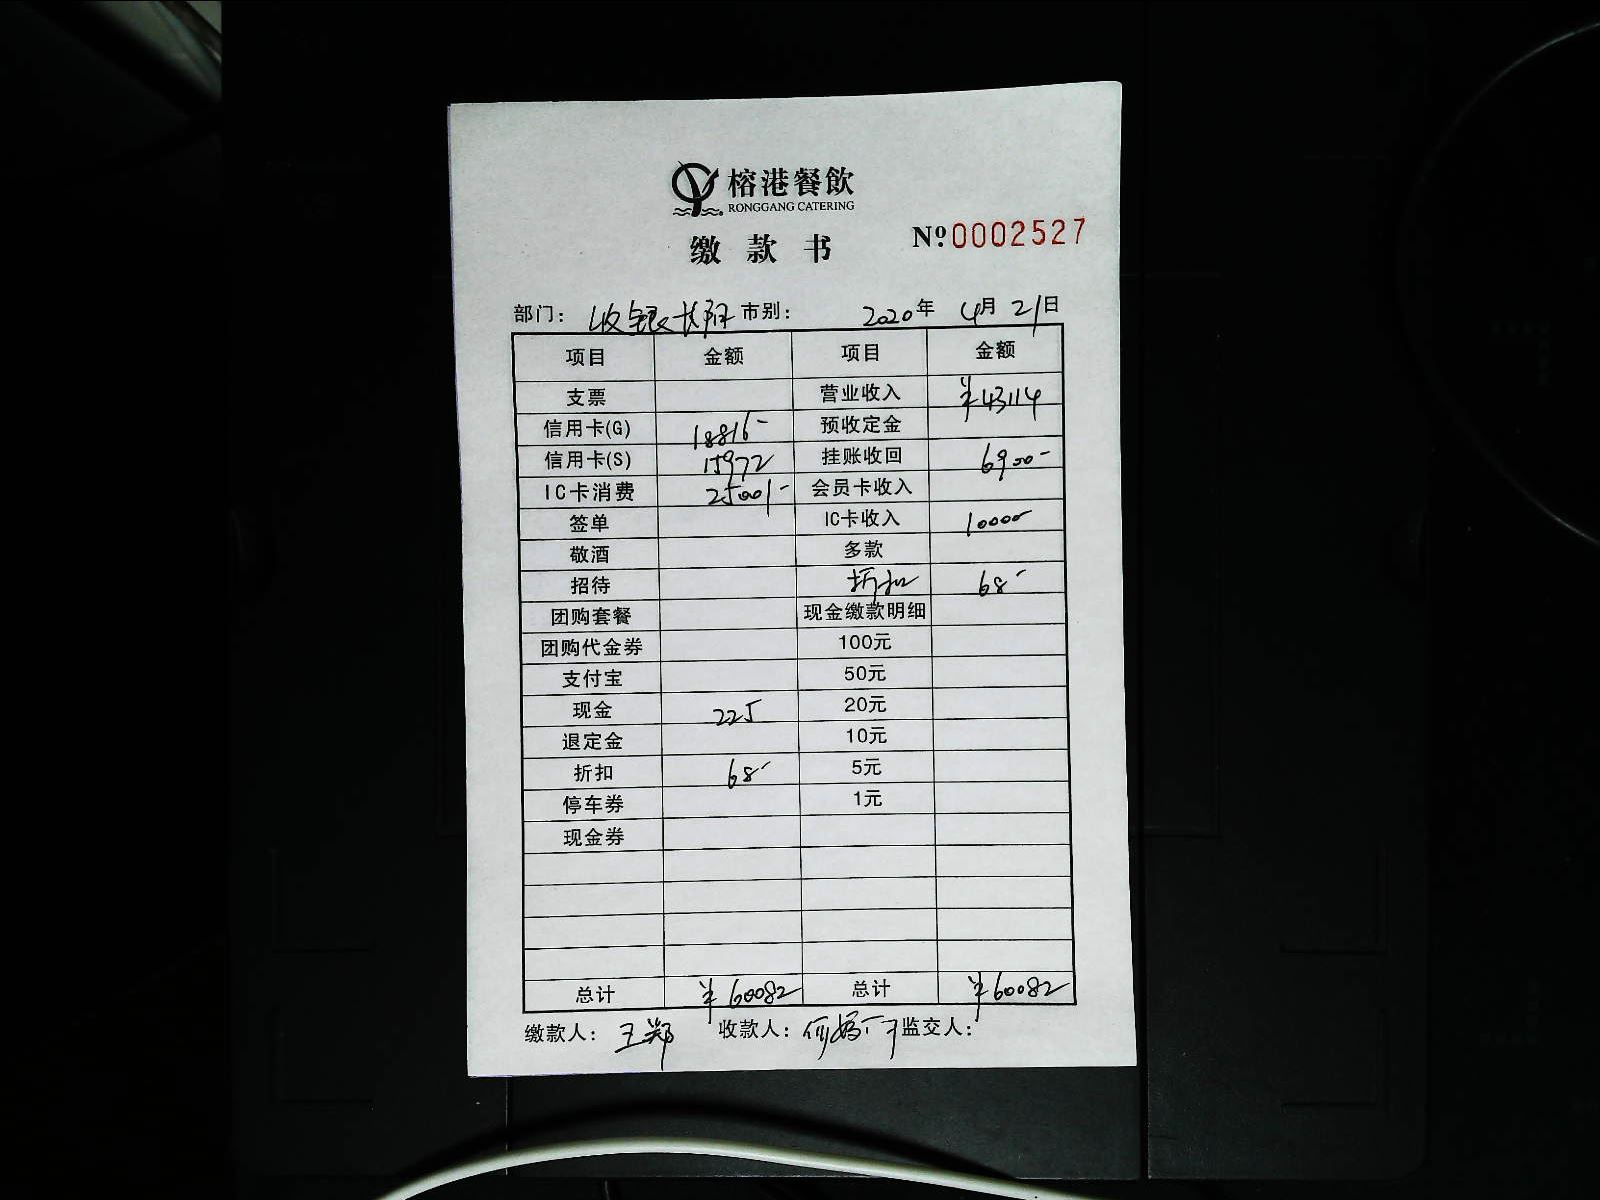 榕港餐飲
RONGGANG CATERING
缴款书
Nº0002527
部门：收银 市别： 2020年 4月 21日
项目 金额 项目 金额
支票 营业收入 ¥43114
信用卡(G) 18816- 预收定金
信用卡(S) 15972 挂账收回 6900-
IC卡消费 25001- 会员卡收入
签单 IC卡收入 10000
敬酒 多款
招待 折扣 68-
团购套餐 现金缴款明细
团购代金券 100元
支付宝 50元
现金 225 20元
退定金 10元
折扣 68- 5元
停车券 1元
现金券
总计 ¥60082 总计 ¥60082
缴款人：王郑 收款人：何 监交人：